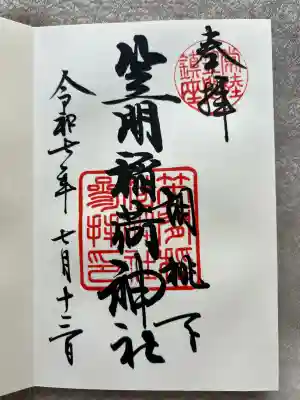 奉拝
胡桃下
笠間稲荷神社
令和七年七月十二日